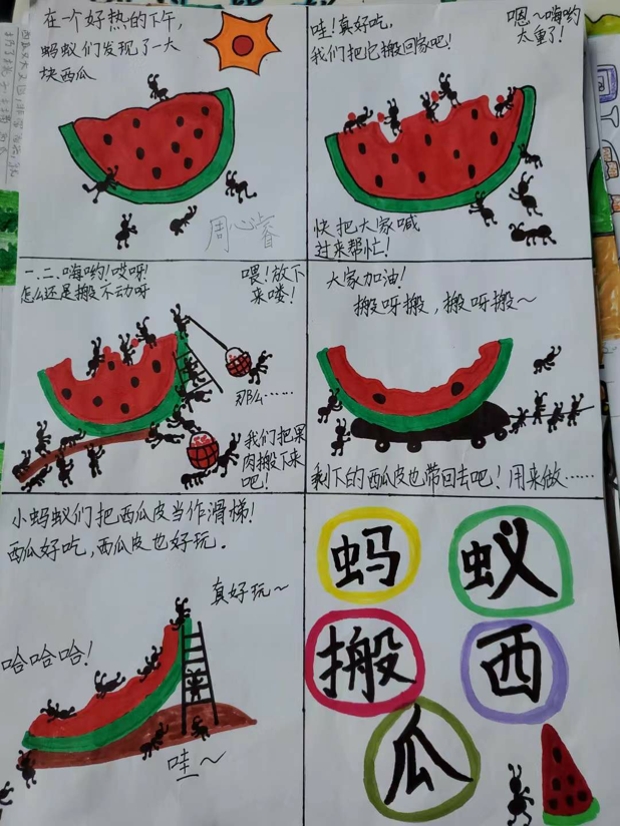 在一个好热的下午,
蚂蚁们发现了一大
块西瓜
哇!真好吃,
我们把它搬回家吧!
嗯~嗨哟
太重了!
快把大家喊
过来帮忙!
一.二.嗨哟!哎呀!
怎么还是搬不动呀
喂!放下
来喽!
那么……
我们把果
肉搬下来
吧!
大家加油!
搬呀搬,搬呀搬~
剩下的西瓜皮也带回去吧!用来做……
小蚂蚁们把西瓜皮当作滑梯!
西瓜好吃,西瓜皮也好玩.
真好玩~
哈哈哈!
哇~
蚂蚁
搬西
瓜